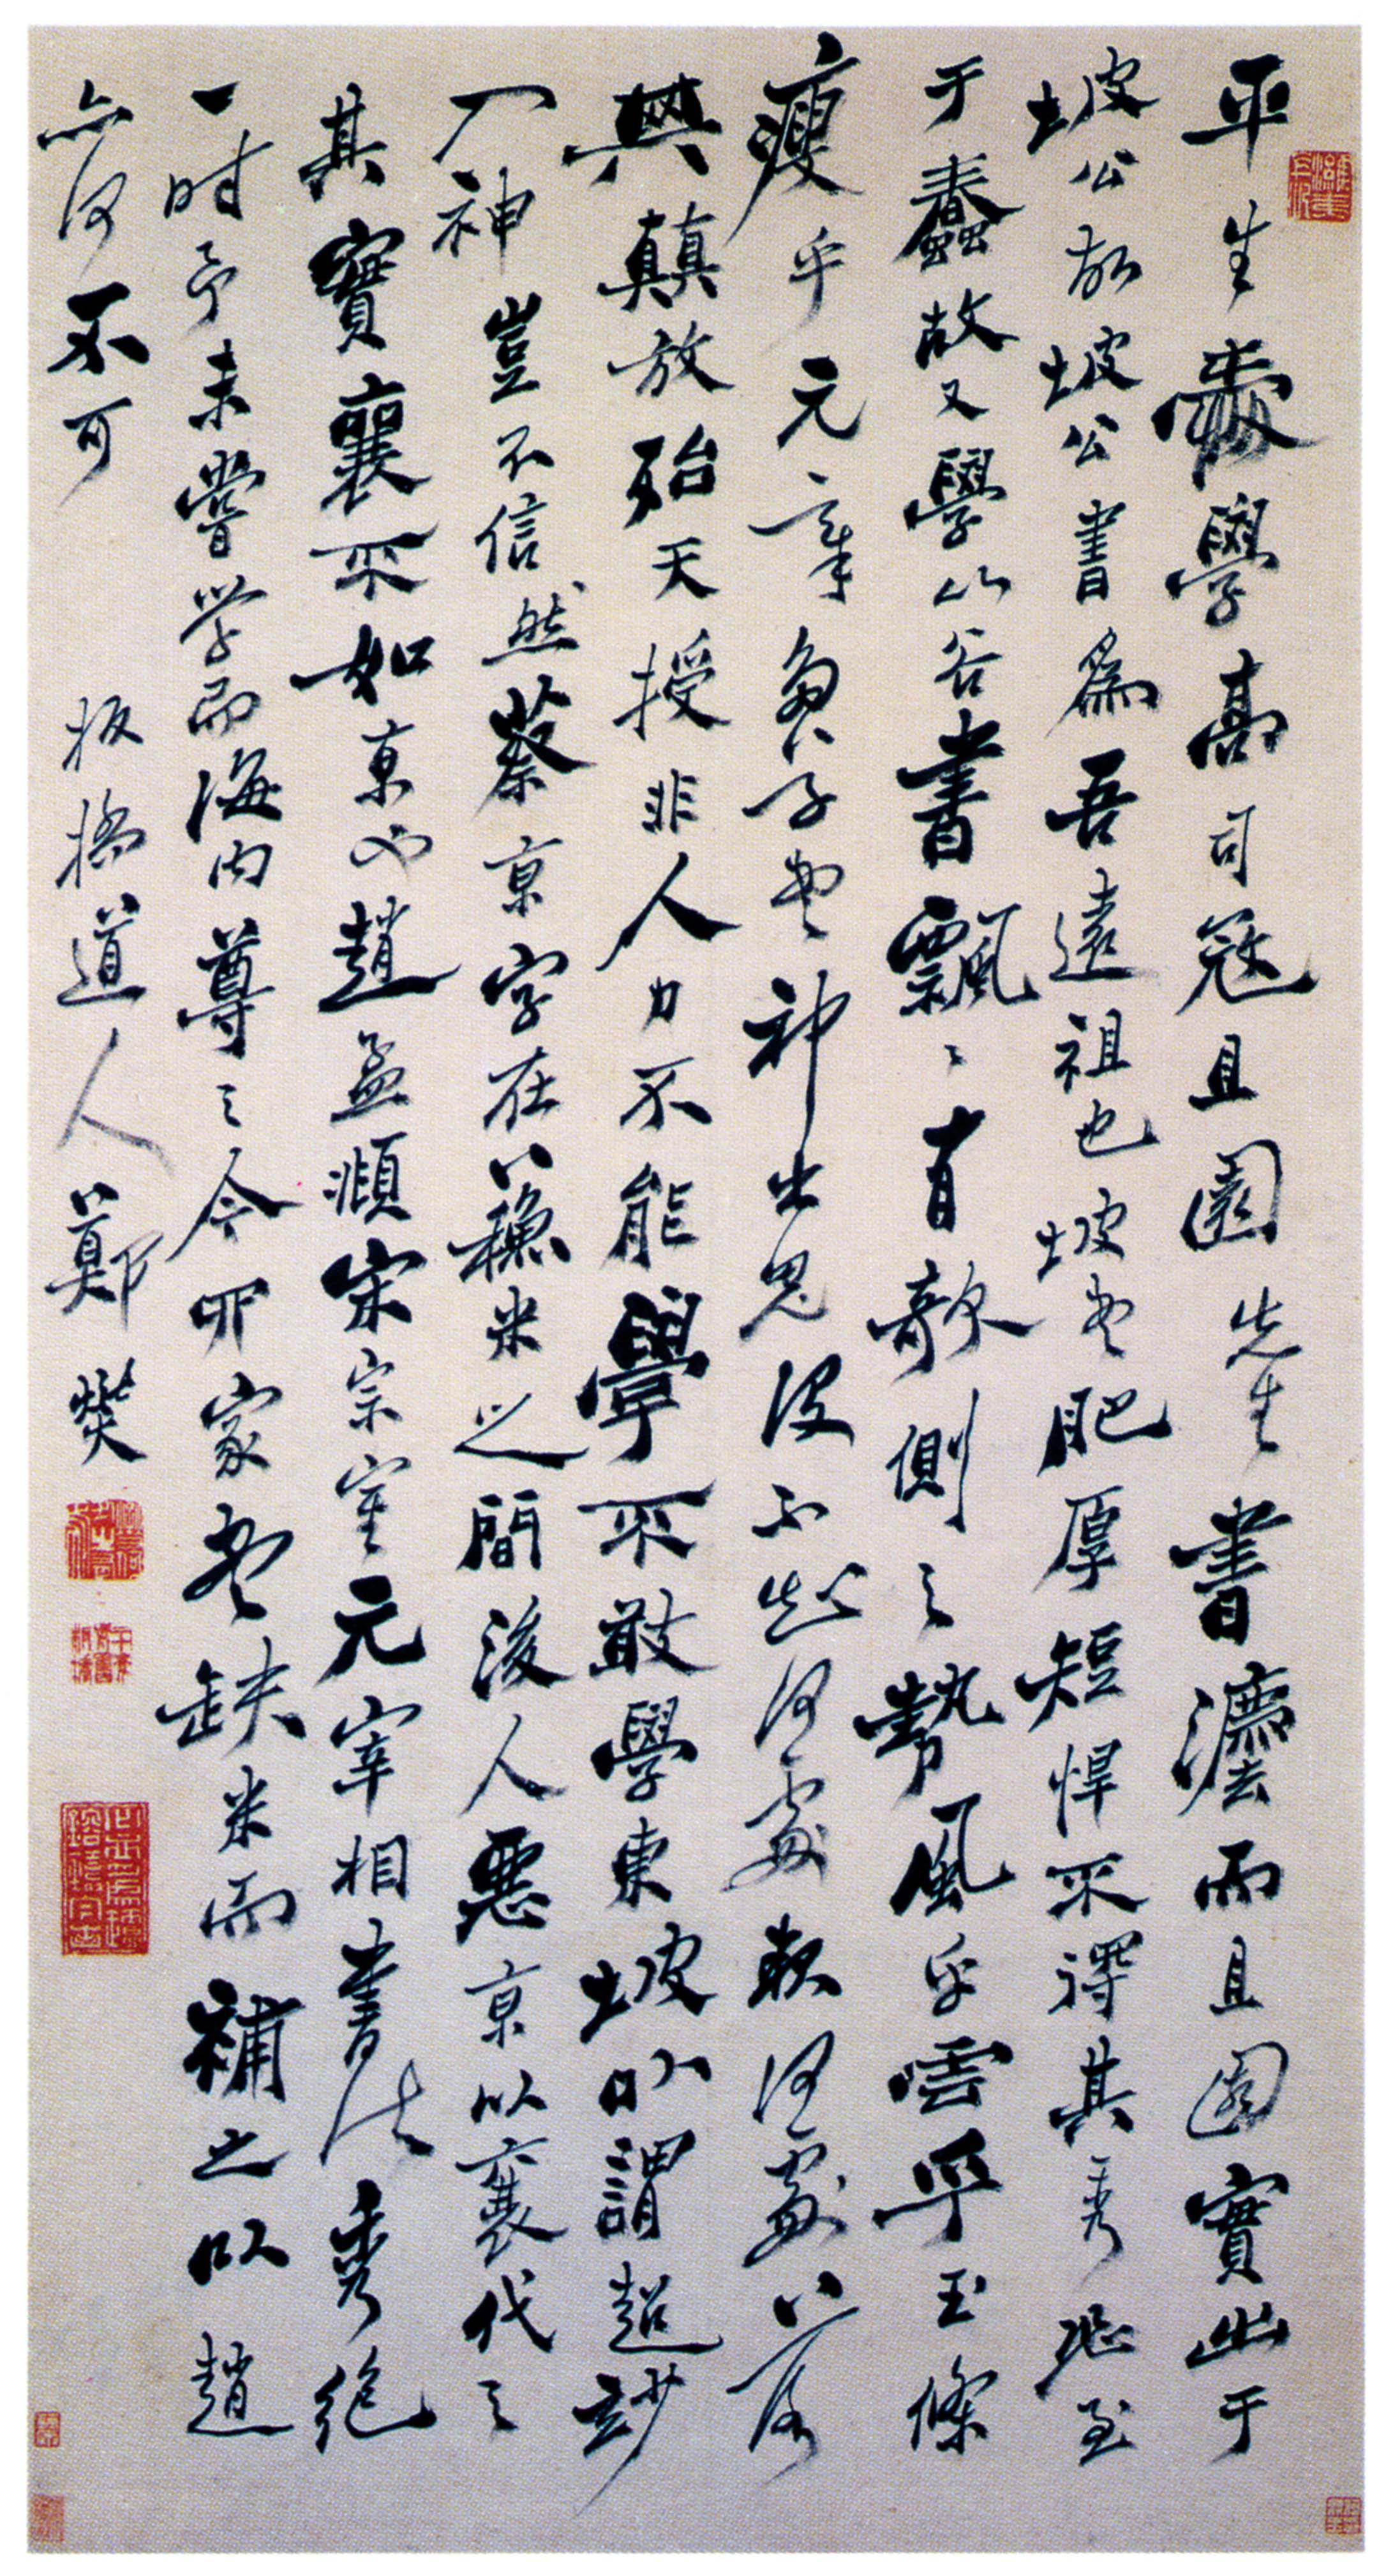 平生愛學高司寇且園先生書灋而且園實出于
坡公故坡公書為吾遠祖也坡書肥厚短悍不得其秀恐至
于蠢故又學山谷書飄〻有欹側之勢風乎雲乎玉條
瘦乎元章多不書神出鬼沒不知何處起何處落
與顛放殆天授非人力不能學不敢學東坡以謂超妙
入神豈不信然蔡京字在蘇米之間後人惡京以襄代之
其實襄不如京也趙孟頫宋宗室元宰相書法秀絕
一時予未嘗學而海内尊之今四家書缺米而補之以趙
亦何不可
板橋道人鄭燮